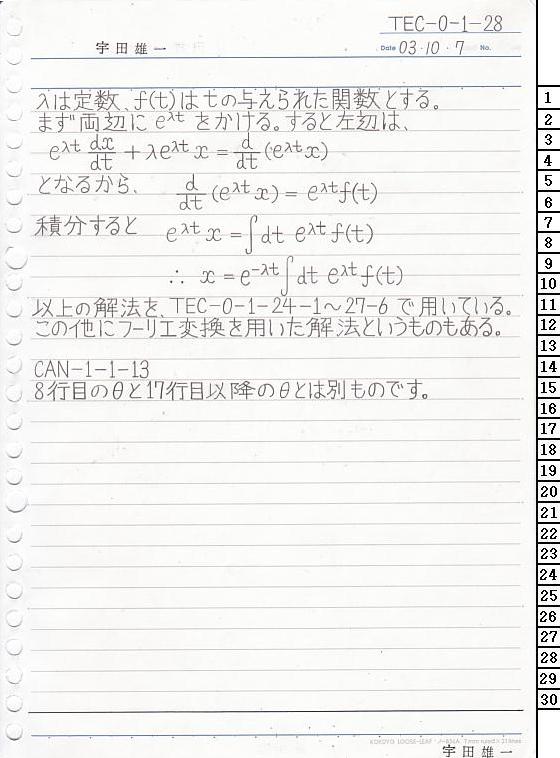 TEC-0-1-28
宇田雄一
Date 03・10・7 No.
λは定数、f(t)はtの与えられた関数とする。
まず両辺に e^λt をかける。すると左辺は、
e^λt dx/dt + λe^λt x = d/dt (e^λt x)
となるから、 d/dt (e^λt x) = e^λt f(t)
積分すると e^λt x = ∫dt e^λt f(t)
∴ x = e^-λt ∫dt e^λt f(t)
以上の解法を、TEC-0-1-24-1～27-6 で用いている。
この他にフーリエ変換を用いた解法というものもある。
CAN-1-1-13
8行目のθと17行目以降のθとは別ものです。
KOKUYO LOOSE-LEAF
宇田雄一
1
2
3
4
5
6
7
8
9
10
11
12
13
14
15
16
17
18
19
20
21
22
23
24
25
26
27
28
29
30